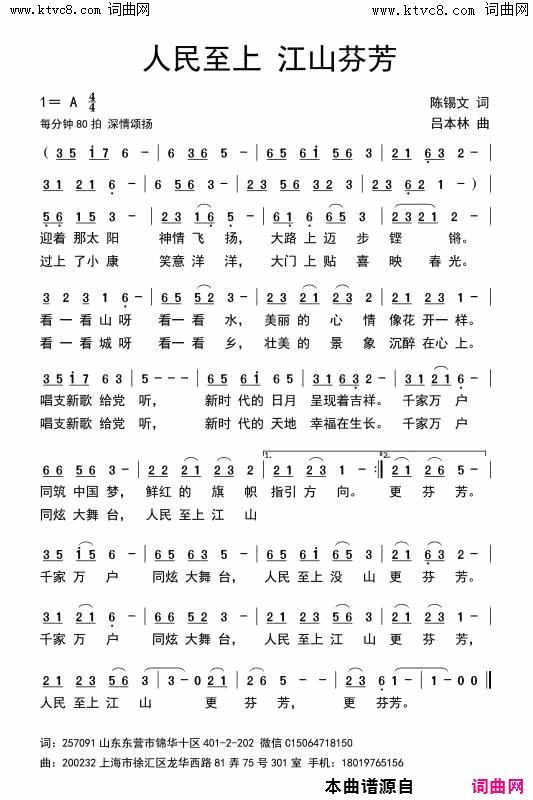 www.ktvc8.com 词曲网 www.ktvc8.com 词曲网
人民至上 江山芬芳
1= A 4/4
陈锡文 词
每分钟80拍 深情颂扬
吕本林 曲
( 3 5 i 7 6 - | 6 3 6 5 - | 6 5 i 5 6 3 | 2 1 6 3 2 -
3 1 2 1 6 - | 6 5 6 3 - | 2 3 5 6 3 2 | 2 3 6 2 1 - )
5 6 1 5 3 - | 2 3 1 6 5 - | 6 1 6 5 6 1 | 2 3 2 1 2 -
迎着 那太 阳 神情 飞 扬， 大路 上 迈 步 铿 锵。
过上 了小 康 笑意 洋 洋， 大门 上 贴 喜 映 春 光。
3 2 3 1 6 - | 6 5 5 2 3 - | 2 3 5 1 2 3 | 2 1 2 3 5 -
看 一 看 山 呀 看 一 看 水， 美丽 的 心 情 像花 开 一 样。
看 一 看 城 呀 看 一 看 乡， 壮美 的 景 象 沉醉 在 心 上。
3 5 i 7 6 3 | 5 - - - | 2 1 5 6 1 3 | 3 1 6 3 2 - | 3 1 2 1 6 -
唱支 新歌 给党 听， 新时 代的 日月 呈现 着吉 祥。 千家 万 户
唱支 新歌 给党 听， 新时 代的 天地 幸福 在生 长。 千家 万 户
6 6 5 6 3 - | 2 2 2 1 2 3 | 2 1 2 3 1 - :| 2 1 2 6 5 -
1.
2.
同筑 中国 梦， 鲜红 的 旗 帜 指引 方 向。 更 芬 芳。
同炫 大舞 台， 人民 至上 江 山
3 5 i 5 6 - | 6 5 6 3 5 - | 6 5 6 i 5 6 5 | 2 1 6 3 2 -
千家 万 户 同炫 大舞 台， 人民 至上 没 山 更 芬 芳。
3 1 2 1 6 - | 5 6 5 2 3 - | 2 1 2 3 5 6 3 | 2 3 2 6 1 -
千家 万 户 同炫 大舞 台， 人民 至上 江 山 更 芬 芳，
2 1 2 3 5 6 | 3 - 0 0 | 2 3 2 6 | 1 - - - | 2 3 2 6 1 - | 1 - 0 0 ||
人民 至上 江 山 更 芬 芳， 更 芬芳。
词：257091 山东东营市锦华十区 401-2-202 微信 C15064718150
曲：200232 上海市徐汇区龙华西路 81 弄 75 号 301 室 手机：18019765156
本曲谱源自 词曲网